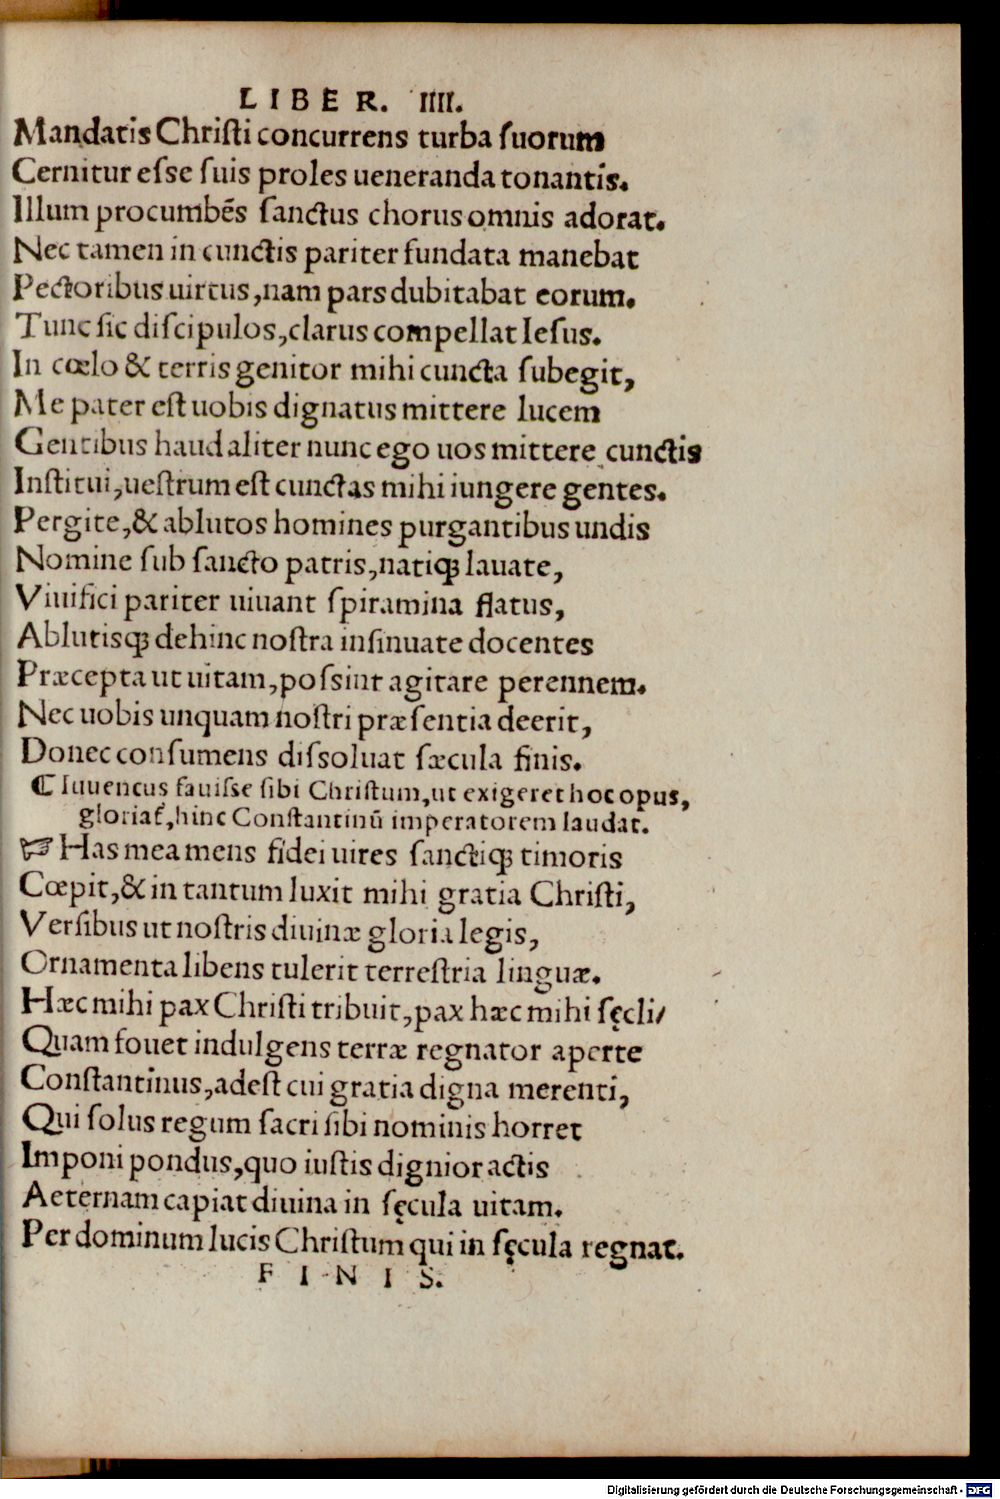 LIBER. IIII.
Mandatis Chriſti concurrens turba ſuorum
Cernitur eſse ſuis proles ueneranda tonantis.
Illum procumbẽs ſanctus chorus omnis adorat.
Nec tamen in cunctis pariter fundata manebat
Pectoribus uirtus, nam pars dubitabat eorum.
Tunc ſic diſcipulos, clarus compellat Ieſus.
In cœlo & terris genitor mihi cuncta ſubegit,
Me pater eſt uobis dignatus mittere lucem
Gentibus haud aliter nunc ego uos mittere cunctis
Inſtitui, ueſtrum eſt cunctas mihi iungere gentes.
Pergite, & ablutos homines purgantibus undis
Nomine ſub ſancto patris, natiqꝫ lauate,
Viuifici pariter uiuant ſpiramina flatus,
Ablutisqꝫ dehinc noſtra inſinuate docentes
Præcepta ut uitam, poſsint agitare perennem.
Nec uobis unquam noſtri præſentia deerit,
Donec conſumens diſsoluat ſæcula finis.
⸿ Iuuencus fauiſse ſibi Chriſtum, ut exigeret hoc opus,
gloriat᷑, hinc Conſtantinũ imperatorem laudat.
☞ Has mea mens fidei uires ſanctiqꝫ timoris
Cœpit, & in tantum luxit mihi gratia Chriſti,
Verſibus ut noſtris diuinæ gloria legis,
Ornamenta libens tulerit terreſtria linguæ.
Hæc mihi pax Chriſti tribuit, pax hæc mihi ſęcli/
Quam fouet indulgens terræ regnator aperte
Conſtantinus, adeſt cui gratia digna merenti,
Qui ſolus regum ſacri ſibi nominis horret
Imponi pondus, quo iuſtis dignior actis
Aeternam capiat diuina in ſęcula uitam.
Per dominum lucis Chriſtum qui in ſęcula regnat.
FINIS.
Digitalisierung gefördert durch die Deutsche Forschungsgemeinschaft - DFG